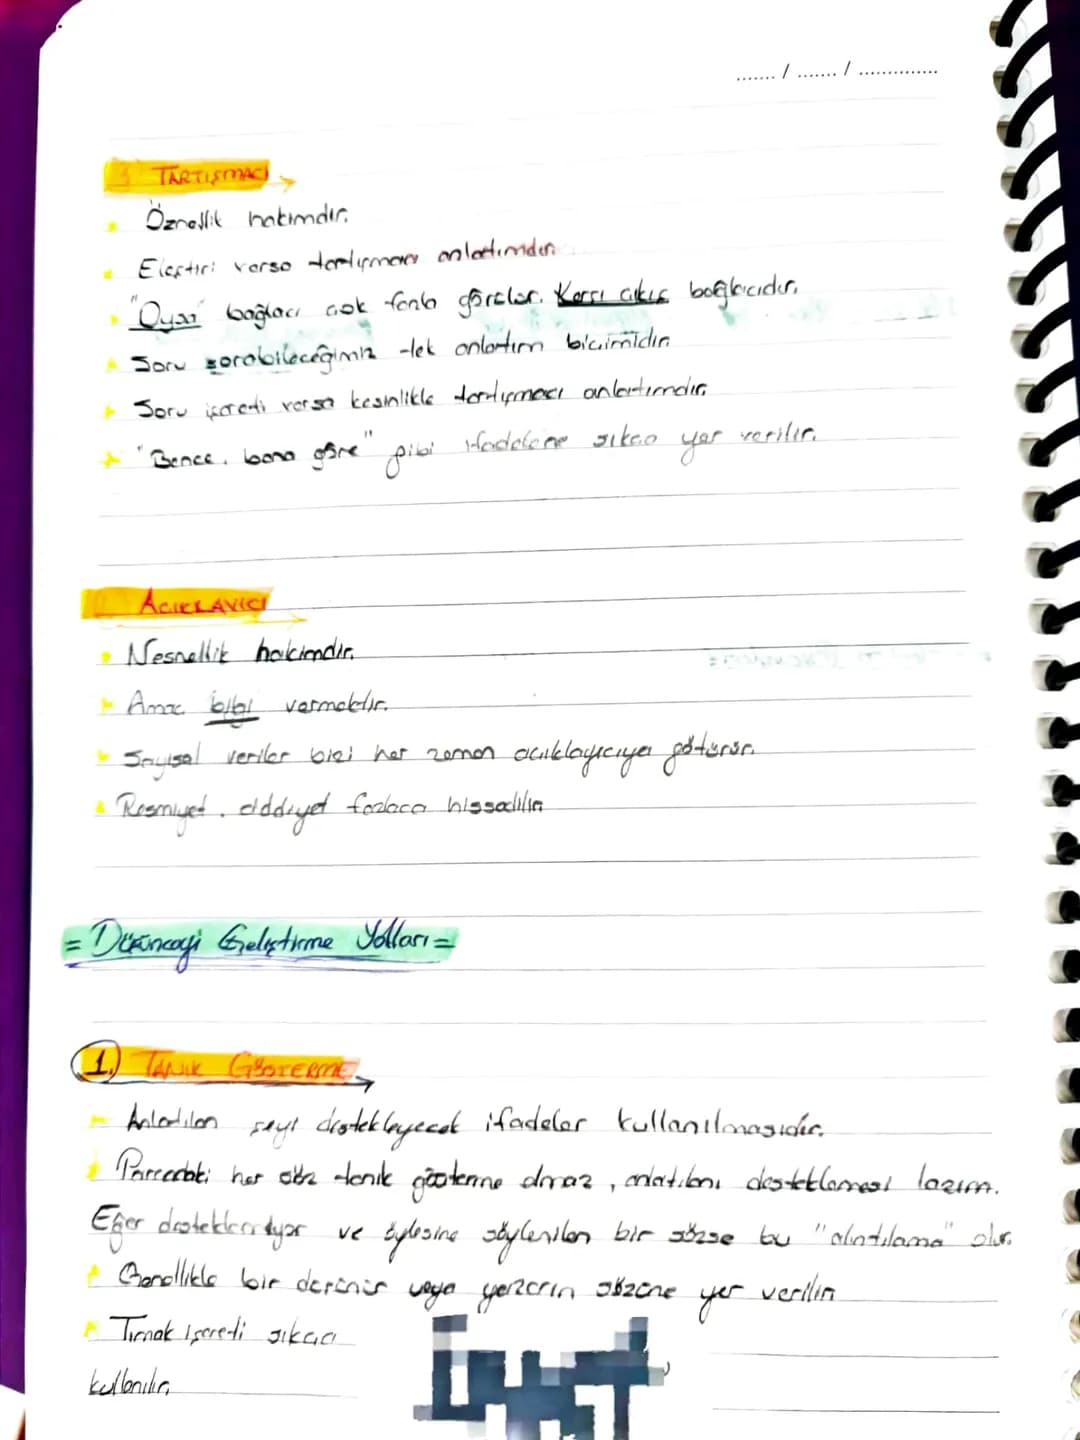 ....... / ....... / ..............
3 TARTIŞMACI
Öznellik hakimdir.
Eleştiri varsa tartışmacı anlatımdır.
"Oysa" bağlacı çok fazla görülür. Karşı çıkış bağlacıdır.
Soru sorabileceğimiz tek anlatım biçimidir.
Soru işareti varsa kesinlikle tartışmacı anlatımdır.
"Bence, bana göre" gibi ifadelere sıkça yer verilir.
AÇIKLAYICI
Nesnellik hakimdir.
Amaç bilgi vermektir.
Sayısal veriler bizi her zaman açıklayıcıya götürür.
Resmiyet, ciddiyet fazlaca hissedilir.
= Düşünceyi Geliştirme Yolları =
1. TANIK GÖSTERME
Anlatılan şeyi destekleyecek ifadeler kullanılmasıdır.
Parçadaki her söz tanık gösterme olmaz, anlatılanı desteklemesi lazım.
Eğer desteklemiyor ve öylesine söylenilen bir sözse bu "alıntılama" olur.
Genellikle bir dersinin veya yazarın sözüne yer verilir.
Tırnak işareti sıkça
kullanılır.